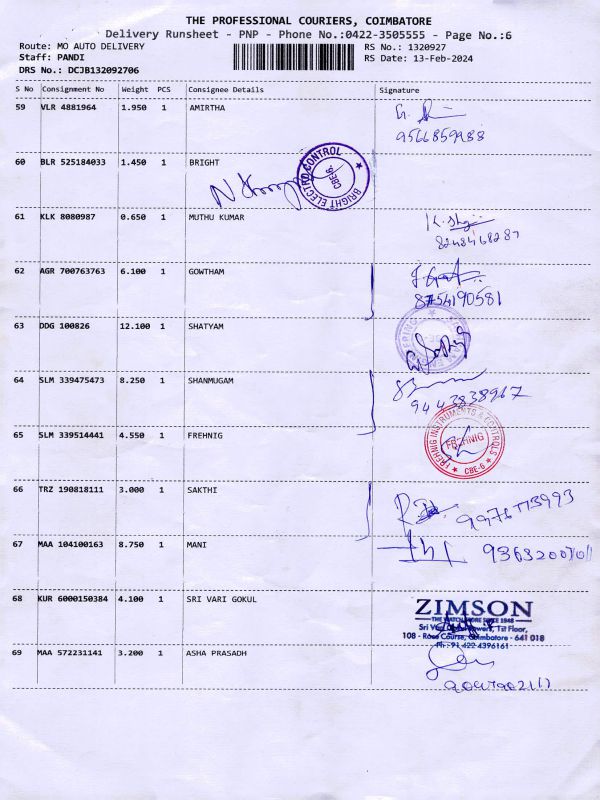 THE PROFESSIONAL COURIERS, COIMBATORE
Delivery Runsheet - PNP - Phone No.:0422-3505555 - Page No.:6
Route: MO AUTO DELIVERY RS No.: 1320927
Staff: PANDI RS Date: 13-Feb-2024
DRS No.: DCJB132092706
S No Consignment No Weight PCS Consignee Details Signature
59 VLR 4881964 1.950 1 AMIRTHA
9566859988
60 BLR 525184033 1.450 1 BRIGHT
BRIGHT ELECTRO CONTROL
CBE-6.
61 KLK 8080987 0.650 1 MUTHU KUMAR
8248468287
62 AGR 700763763 6.100 1 GOWTHAM
8754190581
63 DDG 100826 12.100 1 SHATYAM
64 SLM 339475473 8.250 1 SHANMUGAM
9443838967
65 SLM 339514441 4.550 1 FREHNIG
FREHNIG INSTRUMENTS & CONTROLS
FREHNIG
CBE-6
66 TRZ 190818111 3.000 1 SAKTHI
67 MAA 104100163 8.750 1 MANI
68 KUR 6000150384 4.100 1 SRI VARI GOKUL
ZIMSON
THE WATCH STORE SINCE 1948
Sri Vari Towers, 1st Floor,
108 - Race Course, Coimbatore - 641 018
Ph : 91 422 4396161
69 MAA 572231141 3.200 1 ASHA PRASADH